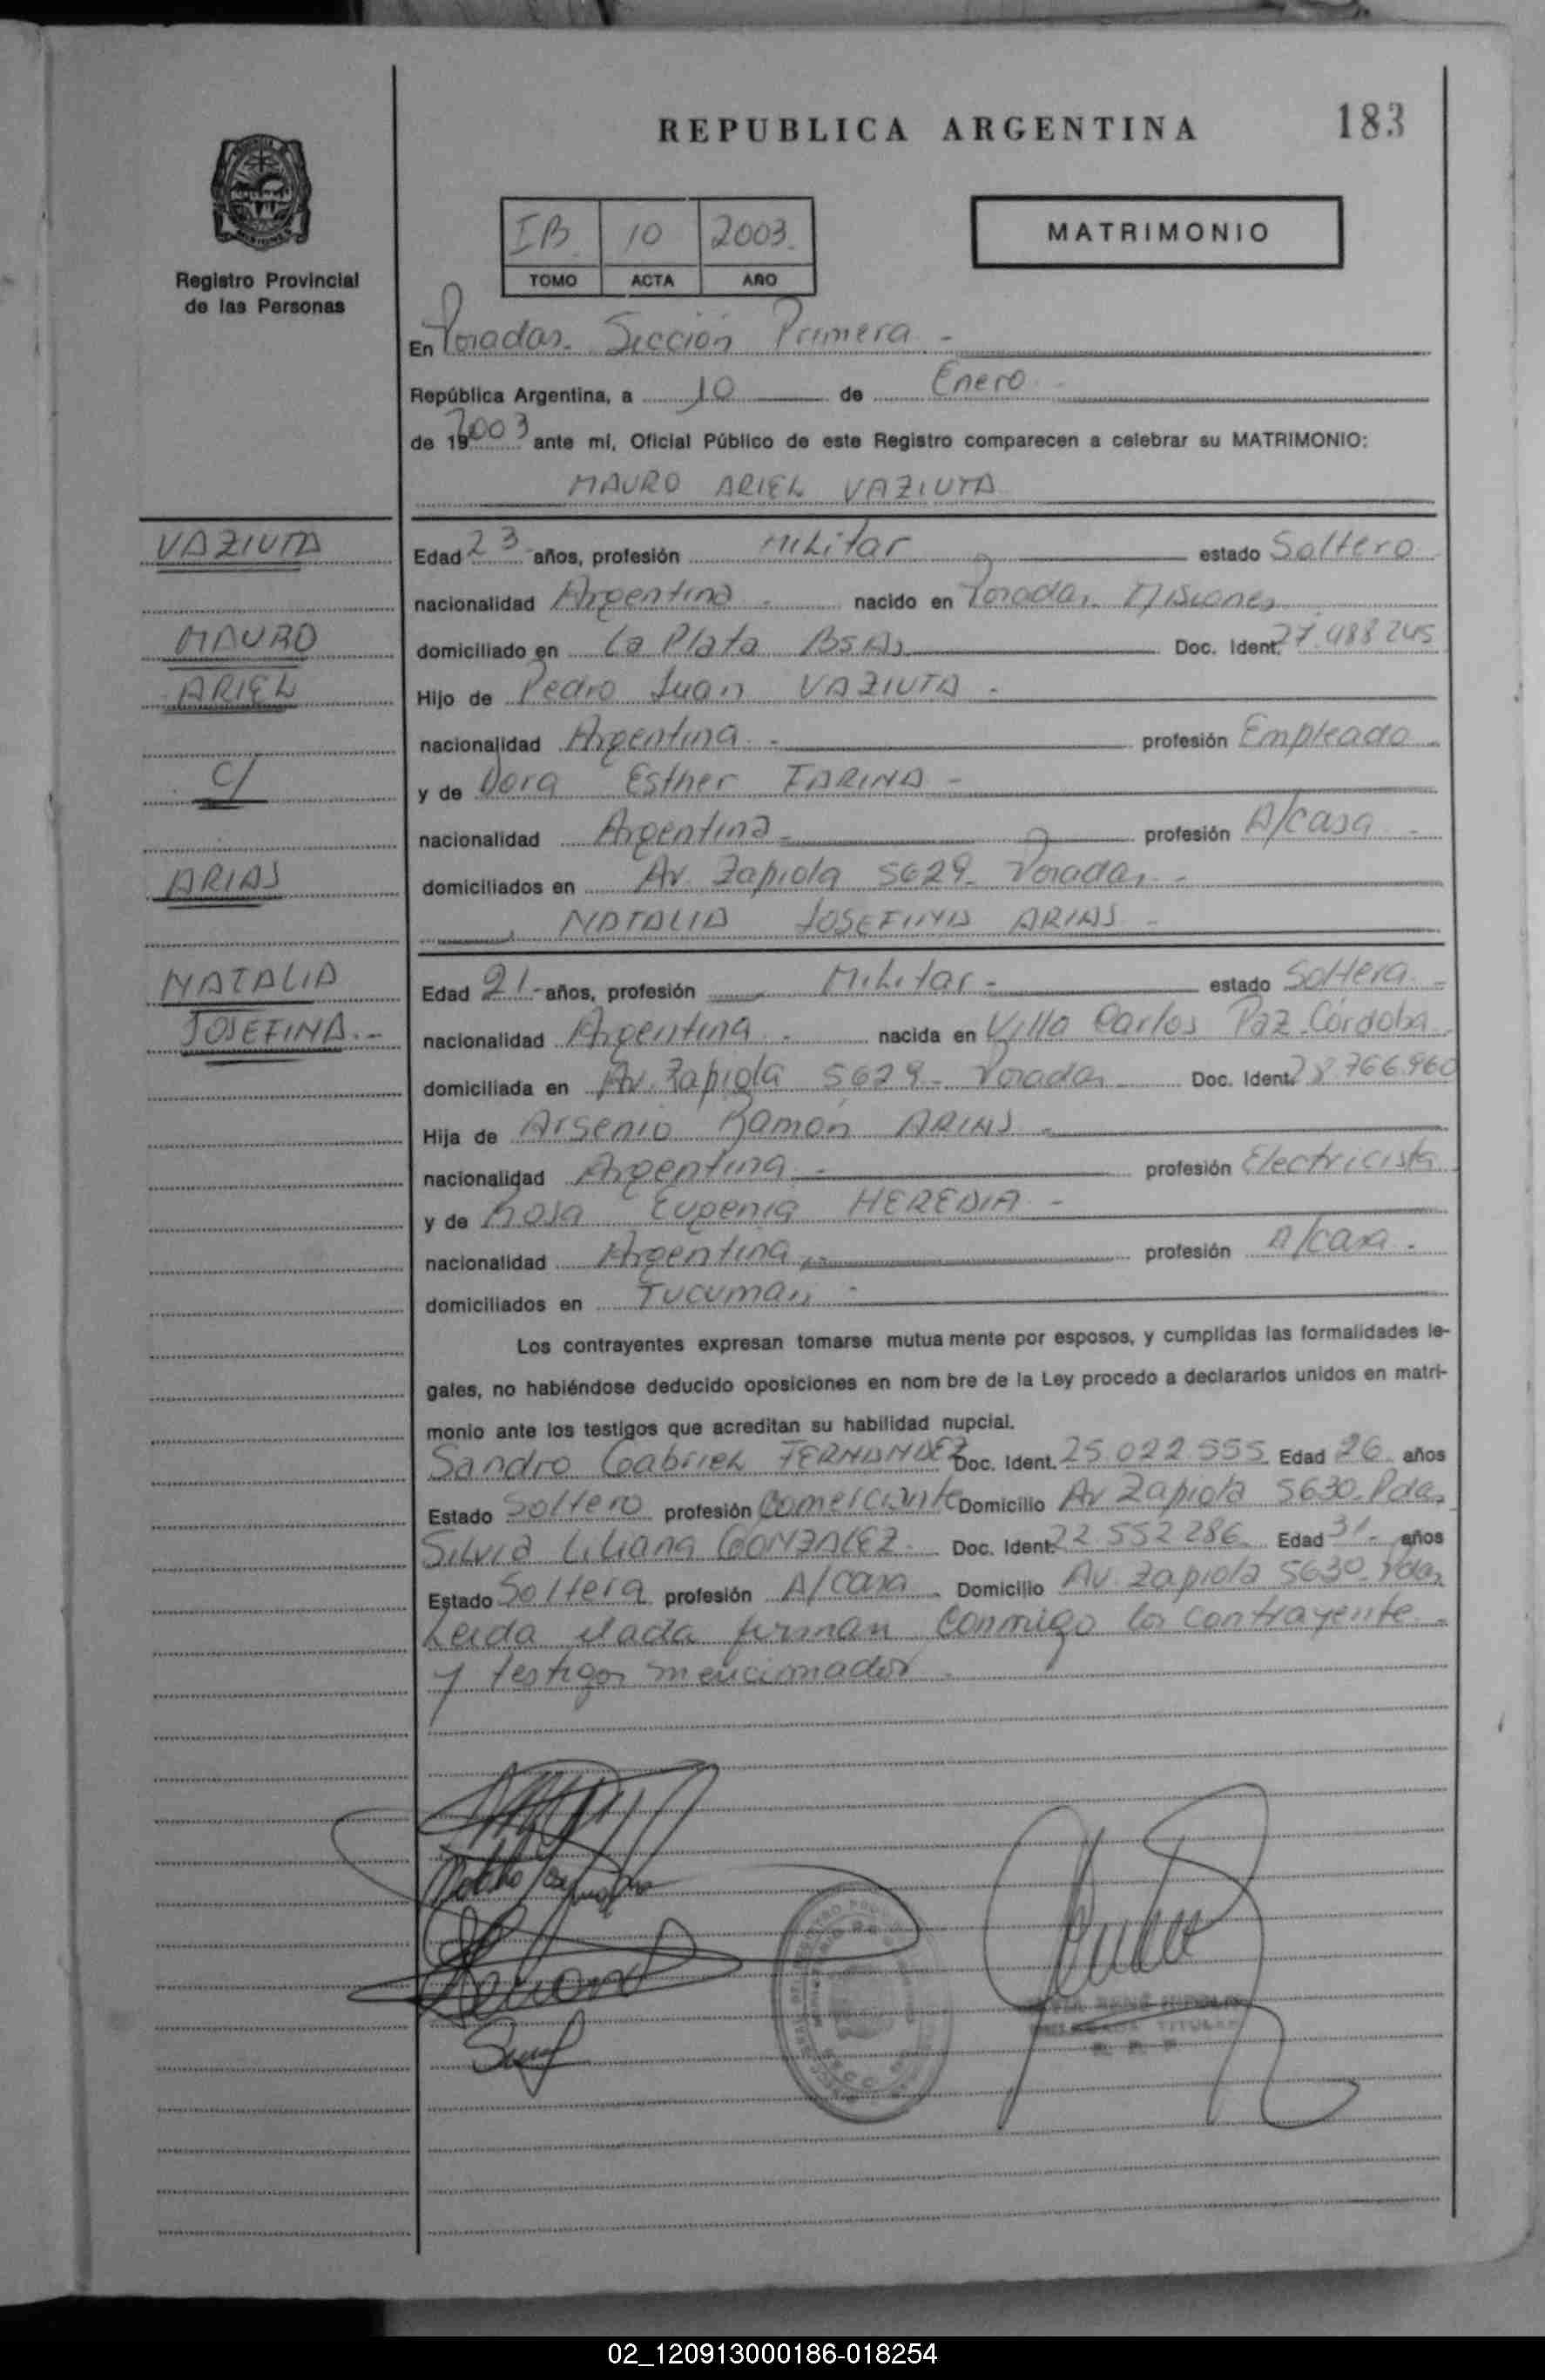 REPUBLICA ARGENTINA 183
MISIONES
Registro Provincial
de las Personas
IB 10 2003
TOMO ACTA AÑO
MATRIMONIO
En Posadas. Sección Primera -
República Argentina, a 10 de Enero
de 19 2003 ante mí, Oficial Público de este Registro comparecen a celebrar su MATRIMONIO:
MAURO ARIEL VAZIUTA
VAZIUTA
MAURO
ARIEL
C/
ARIAS
NATALIA
JOSEFINA.-
Edad 23 años, profesión Militar estado Soltero
nacionalidad Argentina - nacido en Posadas Misiones
domiciliado en La Plata BsAs Doc. Ident. 27.488.245
Hijo de Pedro Juan VAZIUTA -
nacionalidad Argentina - profesión Empleado
y de Dora Esther FARINA -
nacionalidad Argentina - profesión A/casa -
domiciliados en Av. Zapiola 5629- Posadas -
NATALIA JOSEFINA ARIAS -
Edad 21- años, profesión Militar - estado Soltera -
nacionalidad Argentina - nacida en Villa Carlos Paz Córdoba
domiciliada en Av. Zapiola 5629- Posadas Doc. Ident. 28.766.960
Hija de Arsenio Ramón ARIAS -
nacionalidad Argentina - profesión Electricista
y de Rosa Eugenia HEREDIA -
nacionalidad Argentina profesión A/casa -
domiciliados en Tucuman -
Los contrayentes expresan tomarse mutua mente por esposos, y cumplidas las formalidades le-
gales, no habiéndose deducido oposiciones en nom bre de la Ley procedo a declararlos unidos en matri-
monio ante los testigos que acreditan su habilidad nupcial.
Sandro Gabriel FERNANDEZ Doc. Ident. 25.022.555 Edad 26 años
Estado Soltero profesión Comerciante Domicilio Av Zapiola 5630- Pdas
Silvia Liliana GONZALEZ- Doc. Ident. 22.552.286 Edad 31- años
Estado Soltera profesión A/casa Domicilio Av. Zapiola 5630- Pdas
Leida firman conmigo los contrayente
y testigos mencionados
TITULAR
02_120913000186-018254